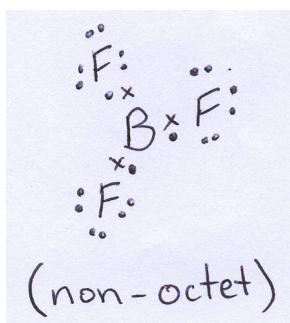 F
F
B
F
(non-octet)